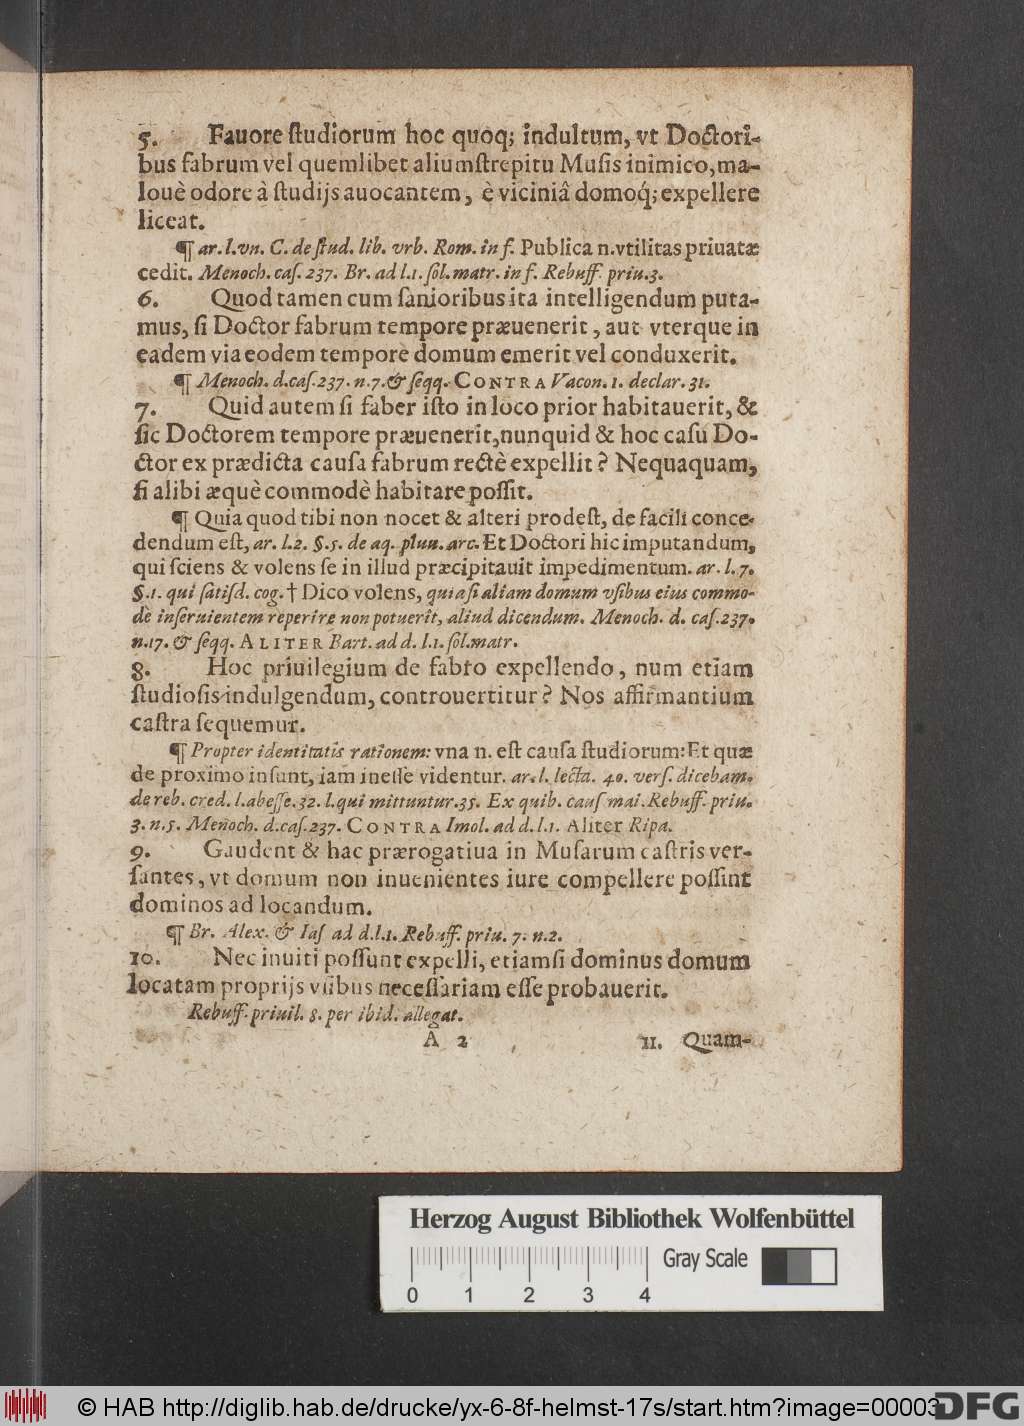 5. Fauore ſtudiorum hoc quoq; indultum, vt Doctori-
bus fabrum vel quemlibet alium ſtrepitu Muſis inimico, ma-
louè odore à ſtudijs auocantem, è viciniâ domoq́; expellere
liceat.
¶ ar. l. vn. C. de ſtud. lib. vrb. Rom. in f. Publica n. vtilitas priuatæ
cedit. Menoch. caſ. 237. Br. ad l. 1. ſol. matr. in f. Rebuff. priu. 3.
6. Quod tamen cum ſanioribus ita intelligendum puta-
mus, ſi Doctor fabrum tempore præuenerit, aut vterque in
eadem via eodem tempore domum emerit vel conduxerit.
¶ Menoch. d. caſ. 237. n. 7. & ſeqq. CONTRA Vacon. 1. declar. 31.
7. Quid autem ſi faber iſto in loco prior habitauerit, &
ſic Doctorem tempore præuenerit, nunquid & hoc caſu Do-
ctor ex prædicta cauſa fabrum rectè expellit? Nequaquam,
ſi alibi æquè commodè habitare poſſit.
¶ Quia quod tibi non nocet & alteri prodeſt, de facili conce-
dendum eſt, ar. l. 2. §. 5. de aq. pluu. arc. Et Doctori hic imputandum,
qui ſciens & volens ſe in illud præcipitauit impedimentum. ar. l. 7.
§. 1. qui ſatiſd. cog. † Dico volens, quia ſi aliam domum vſibus eius commo-
dè inſeruientem reperire non potuerit, aliud dicendum. Menoch. d. caſ. 237.
n. 17. & ſeqq. ALITER Bart. ad d. l. 1. ſol. matr.
8. Hoc priuilegium de fabro expellendo, num etiam
ſtudioſis indulgendum, controuertitur? Nos affirmantium
caſtra ſequemur.
¶ Propter identitatis rationem: vna n. eſt cauſa ſtudiorum: Et quæ
de proximo inſunt, iam ineſſe videntur. ar. l. lecta. 40. verſ. dicebam.
de reb. cred. l. abeſſe. 32. l. qui mittuntur. 35. Ex quib. cauſ mai. Rebuff. priu.
3. n. 5. Menoch. d. caſ. 237. CONTRA Imol. ad d. l. 1. Aliter Ripa.
9. Gaudent & hac prærogatiua in Muſarum caſtris ver-
ſantes, vt domum non inuenientes iure compellere poſſint
dominos ad locandum.
¶ Br. Alex. & Iaſ ad d. l. 1. Rebuff. priu. 7. n. 2.
10. Nec inuiti poſſunt expelli, etiamſi dominus domum
locatam proprijs vſibus neceſſariam eſſe probauerit.
Rebuff. priuil. 8. per ibid. allegat.
A 2 11. Quam-
Herzog August Bibliothek Wolfenbüttel
Gray Scale
0 1 2 3 4
© HAB http://diglib.hab.de/drucke/yx-6-8f-helmst-17s/start.htm?image=00003
DFG